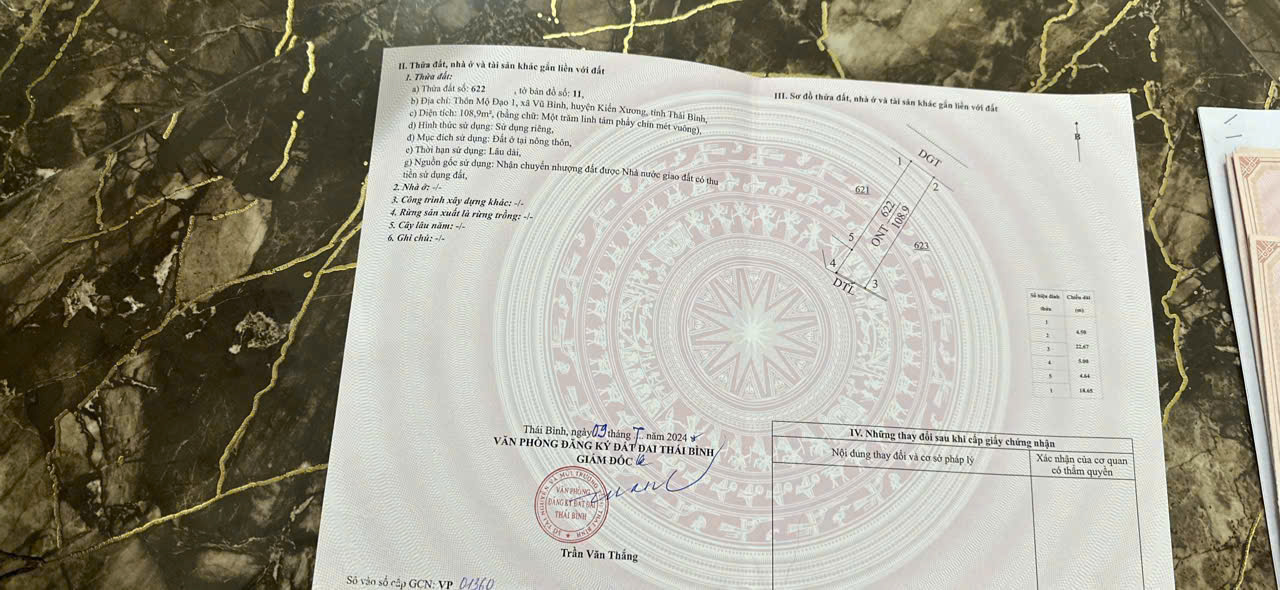 II. Thửa đất, nhà ở và tài sản khác gắn liền với đất
1. Thửa đất:
a) Thửa đất số: 622 , tờ bản đồ số: 11,
b) Địa chỉ: Thôn Mộ Đạo 1, xã Vũ Bình, huyện Kiến Xương, tỉnh Thái Bình,
c) Diện tích: 108,9m², (bằng chữ: Một trăm linh tám phẩy chín mét vuông),
d) Hình thức sử dụng: Sử dụng riêng,
đ) Mục đích sử dụng: Đất ở tại nông thôn,
e) Thời hạn sử dụng: Lâu dài,
g) Nguồn gốc sử dụng: Nhận chuyển nhượng đất được Nhà nước giao đất có thu
tiền sử dụng đất,
2. Nhà ở: -/-
3. Công trình xây dựng khác: -/-
4. Rừng sản xuất là rừng trồng: -/-
5. Cây lâu năm: -/-
6. Ghi chú: -/-
Thái Bình, ngày 09 tháng năm 2024
VĂN PHÒNG ĐĂNG KÝ ĐẤT ĐAI THÁI BÌNH
GIÁM ĐỐC
VĂN PHÒNG
ĐĂNG KÝ ĐẤT ĐAI
THÁI BÌNH
Trần Văn Thắng
Số vào sổ cấp GCN: VP 01360
III. Sơ đồ thửa đất, nhà ở và tài sản khác gắn liền với đất
B
ĐGT
1
2
621
622
ONT 108.9
623
5
4
3
DTL
Số hiệu đỉnh thửa
Chiều dài (m)
1
4.98
2
22.67
3
5.00
4
4.64
5
18.65
1
IV. Những thay đổi sau khi cấp giấy chứng nhận
Nội dung thay đổi và cơ sở pháp lý
Xác nhận của cơ quan
có thẩm quyền